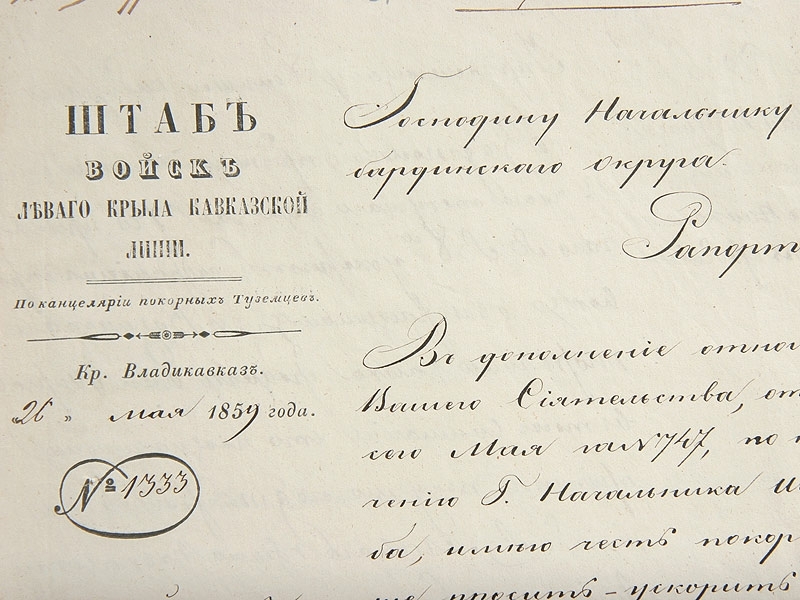 ШТАБЪ
ВОЙСКЪ
ЛѢВАГО КРЫЛА КАВКАЗСКОЙ
ЛИНІИ.
По канцеляріи покорныхъ Туземцевъ.
Кр. Владикавказъ.
„26 „ мая 1859 года.
№ 1333
Господину Начальнику
бардинскаго округа.
Рапорт
Въ дополненіе отно
Вашего Сіятельства, от
сего Мая за № 747, по
ченію Г. Начальника
ба, имѣю честь покор
просить - ускорить